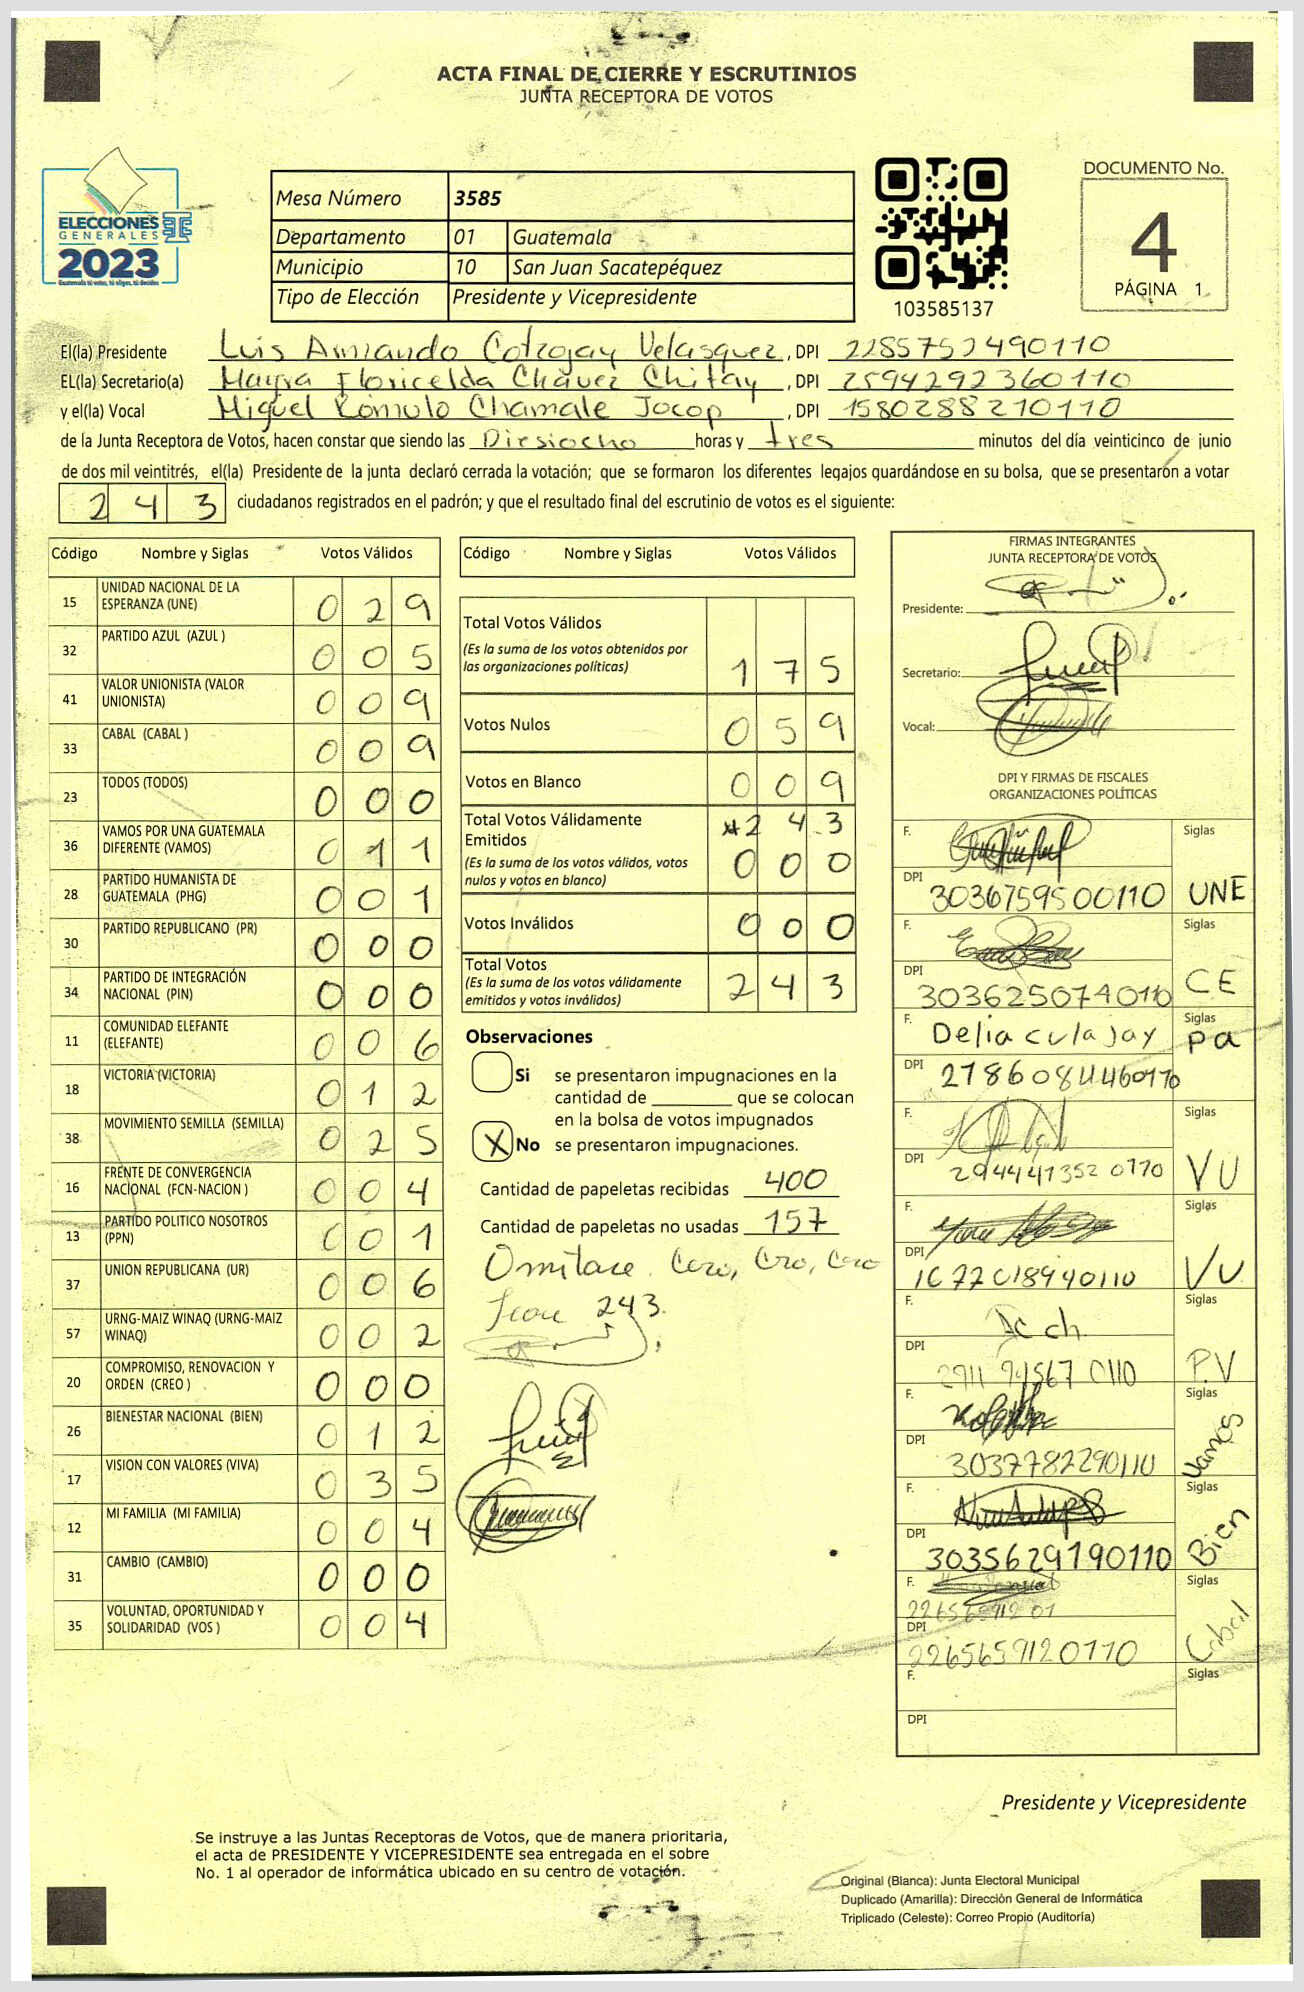 ACTA FINAL DE CIERRE Y ESCRUTINIOS
JUNTA RECEPTORA DE VOTOS
ELECCIONES
GENERALES
2023
Mesa Número 3585
Departamento 01 Guatemala
Municipio 10 San Juan Sacatepéquez
Tipo de Elección Presidente y Vicepresidente
103585137
DOCUMENTO No.
4
PÁGINA 1
El(la) Presidente Luis Armando Cotzojay Velasquez, DPI 2285752490110
EL(la) Secretario(a) Mayra Floricelda Chávez Chitay, DPI 2594292360110
y el(la) Vocal Miguel Rómulo Chamale Jocop, DPI 1580288210110
de la Junta Receptora de Votos, hacen constar que siendo las Diesiocho horas y tres minutos del día veinticinco de junio
de dos mil veintitrés, el(la) Presidente de la junta declaró cerrada la votación; que se formaron los diferentes legajos quardándose en su bolsa, que se presentarón a votar
243 ciudadanos registrados en el padrón; y que el resultado final del escrutinio de votos es el siguiente:
Código Nombre y Siglas Votos Válidos
15 UNIDAD NACIONAL DE LA ESPERANZA (UNE) 029
32 PARTIDO AZUL (AZUL ) 005
41 VALOR UNIONISTA (VALOR UNIONISTA) 009
33 CABAL (CABAL ) 009
23 TODOS (TODOS) 000
36 VAMOS POR UNA GUATEMALA DIFERENTE (VAMOS) 011
28 PARTIDO HUMANISTA DE GUATEMALA (PHG) 001
30 PARTIDO REPUBLICANO (PR) 000
34 PARTIDO DE INTEGRACIÓN NACIONAL (PIN) 000
11 COMUNIDAD ELEFANTE (ELEFANTE) 006
18 VICTORIA (VICTORIA) 012
38 MOVIMIENTO SEMILLA (SEMILLA) 025
16 FRENTE DE CONVERGENCIA NACIONAL (FCN-NACION ) 004
13 PARTIDO POLITICO NOSOTROS (PPN) 001
37 UNION REPUBLICANA (UR) 006
57 URNG-MAIZ WINAQ (URNG-MAIZ WINAQ) 002
20 COMPROMISO, RENOVACION Y ORDEN (CREO ) 000
26 BIENESTAR NACIONAL (BIEN) 012
17 VISION CON VALORES (VIVA) 035
12 MI FAMILIA (MI FAMILIA) 004
31 CAMBIO (CAMBIO) 000
35 VOLUNTAD, OPORTUNIDAD Y SOLIDARIDAD (VOS ) 004
Código Nombre y Siglas Votos Válidos
Total Votos Válidos
(Es la suma de los votos obtenidos por
las organizaciones políticas) 175
Votos Nulos 059
Votos en Blanco 009
Total Votos Válidamente 243
Emitidos
(Es la suma de los votos válidos, votos
nulos y votos en blanco) 000
Votos Inválidos 000
Total Votos
(Es la suma de los votos válidamente
emitidos y votos inválidos) 243
Observaciones
Si se presentaron impugnaciones en la
cantidad de ________ que se colocan
en la bolsa de votos impugnados
X No se presentaron impugnaciones.
Cantidad de papeletas recibidas 400
Cantidad de papeletas no usadas 157
Omitase Cero, Cero, Cero
243.
FIRMAS INTEGRANTES
JUNTA RECEPTORA DE VOTOS
Presidente:
Secretario:
Vocal:
DPI Y FIRMAS DE FISCALES
ORGANIZACIONES POLÍTICAS
F. Siglas
DPI 3036759500110 UNE
F. Siglas
DPI 3036250740110 CE
F. Delia culajay Siglas
DPI 2786084460110 pa
F. Siglas
DPI 2944413520110 VU
F. Siglas
DPI 1677018940110 VU
F. Siglas
DPI P.V
F. Siglas
DPI 3037782290110 Vamos
F. Siglas
DPI 3035629190110 Bien
F. Siglas
226565911201
DPI 2265659120110 Cabal
F. Siglas
DPI
Presidente y Vicepresidente
Se instruye a las Juntas Receptoras de Votos, que de manera prioritaria,
el acta de PRESIDENTE Y VICEPRESIDENTE sea entregada en el sobre
No. 1 al operador de informática ubicado en su centro de votación.
Original (Blanca): Junta Electoral Municipal
Duplicado (Amarilla): Dirección General de Informática
Triplicado (Celeste): Correo Propio (Auditoría)